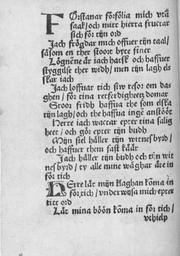 FÖrstanar förfölia mich vtå
saak/och mitt hierta fructar
sich för tijn ord
Jach frögdar mich offuer tijn taal/
såsom en ther stoort byte finer
Lögnene är iach hatsk och haffuer
styggilse ther widh/ men tijn lagh els
skar iach
Jach loffuar tich siw resor om das
ghen/ för tina retferdigheetz domar
Stoor fridh haffua the som elska
tijn lagh/och the haffua inge anstööt
Herre iach waetar epter tina salig
heet/ och gör epter tijn budh
Mijn siel håller tijn witnesbyrd/
och haffuer them fast käär
Jach håller tijn budh och tijn wit
nesbyrd/ ty alle mine wäghar äre in
för tich
HErre låt mijn klaghan koma in
för tich/ vnderwijsa mich epter
titt ord
Lät mina böön koma in för tich/